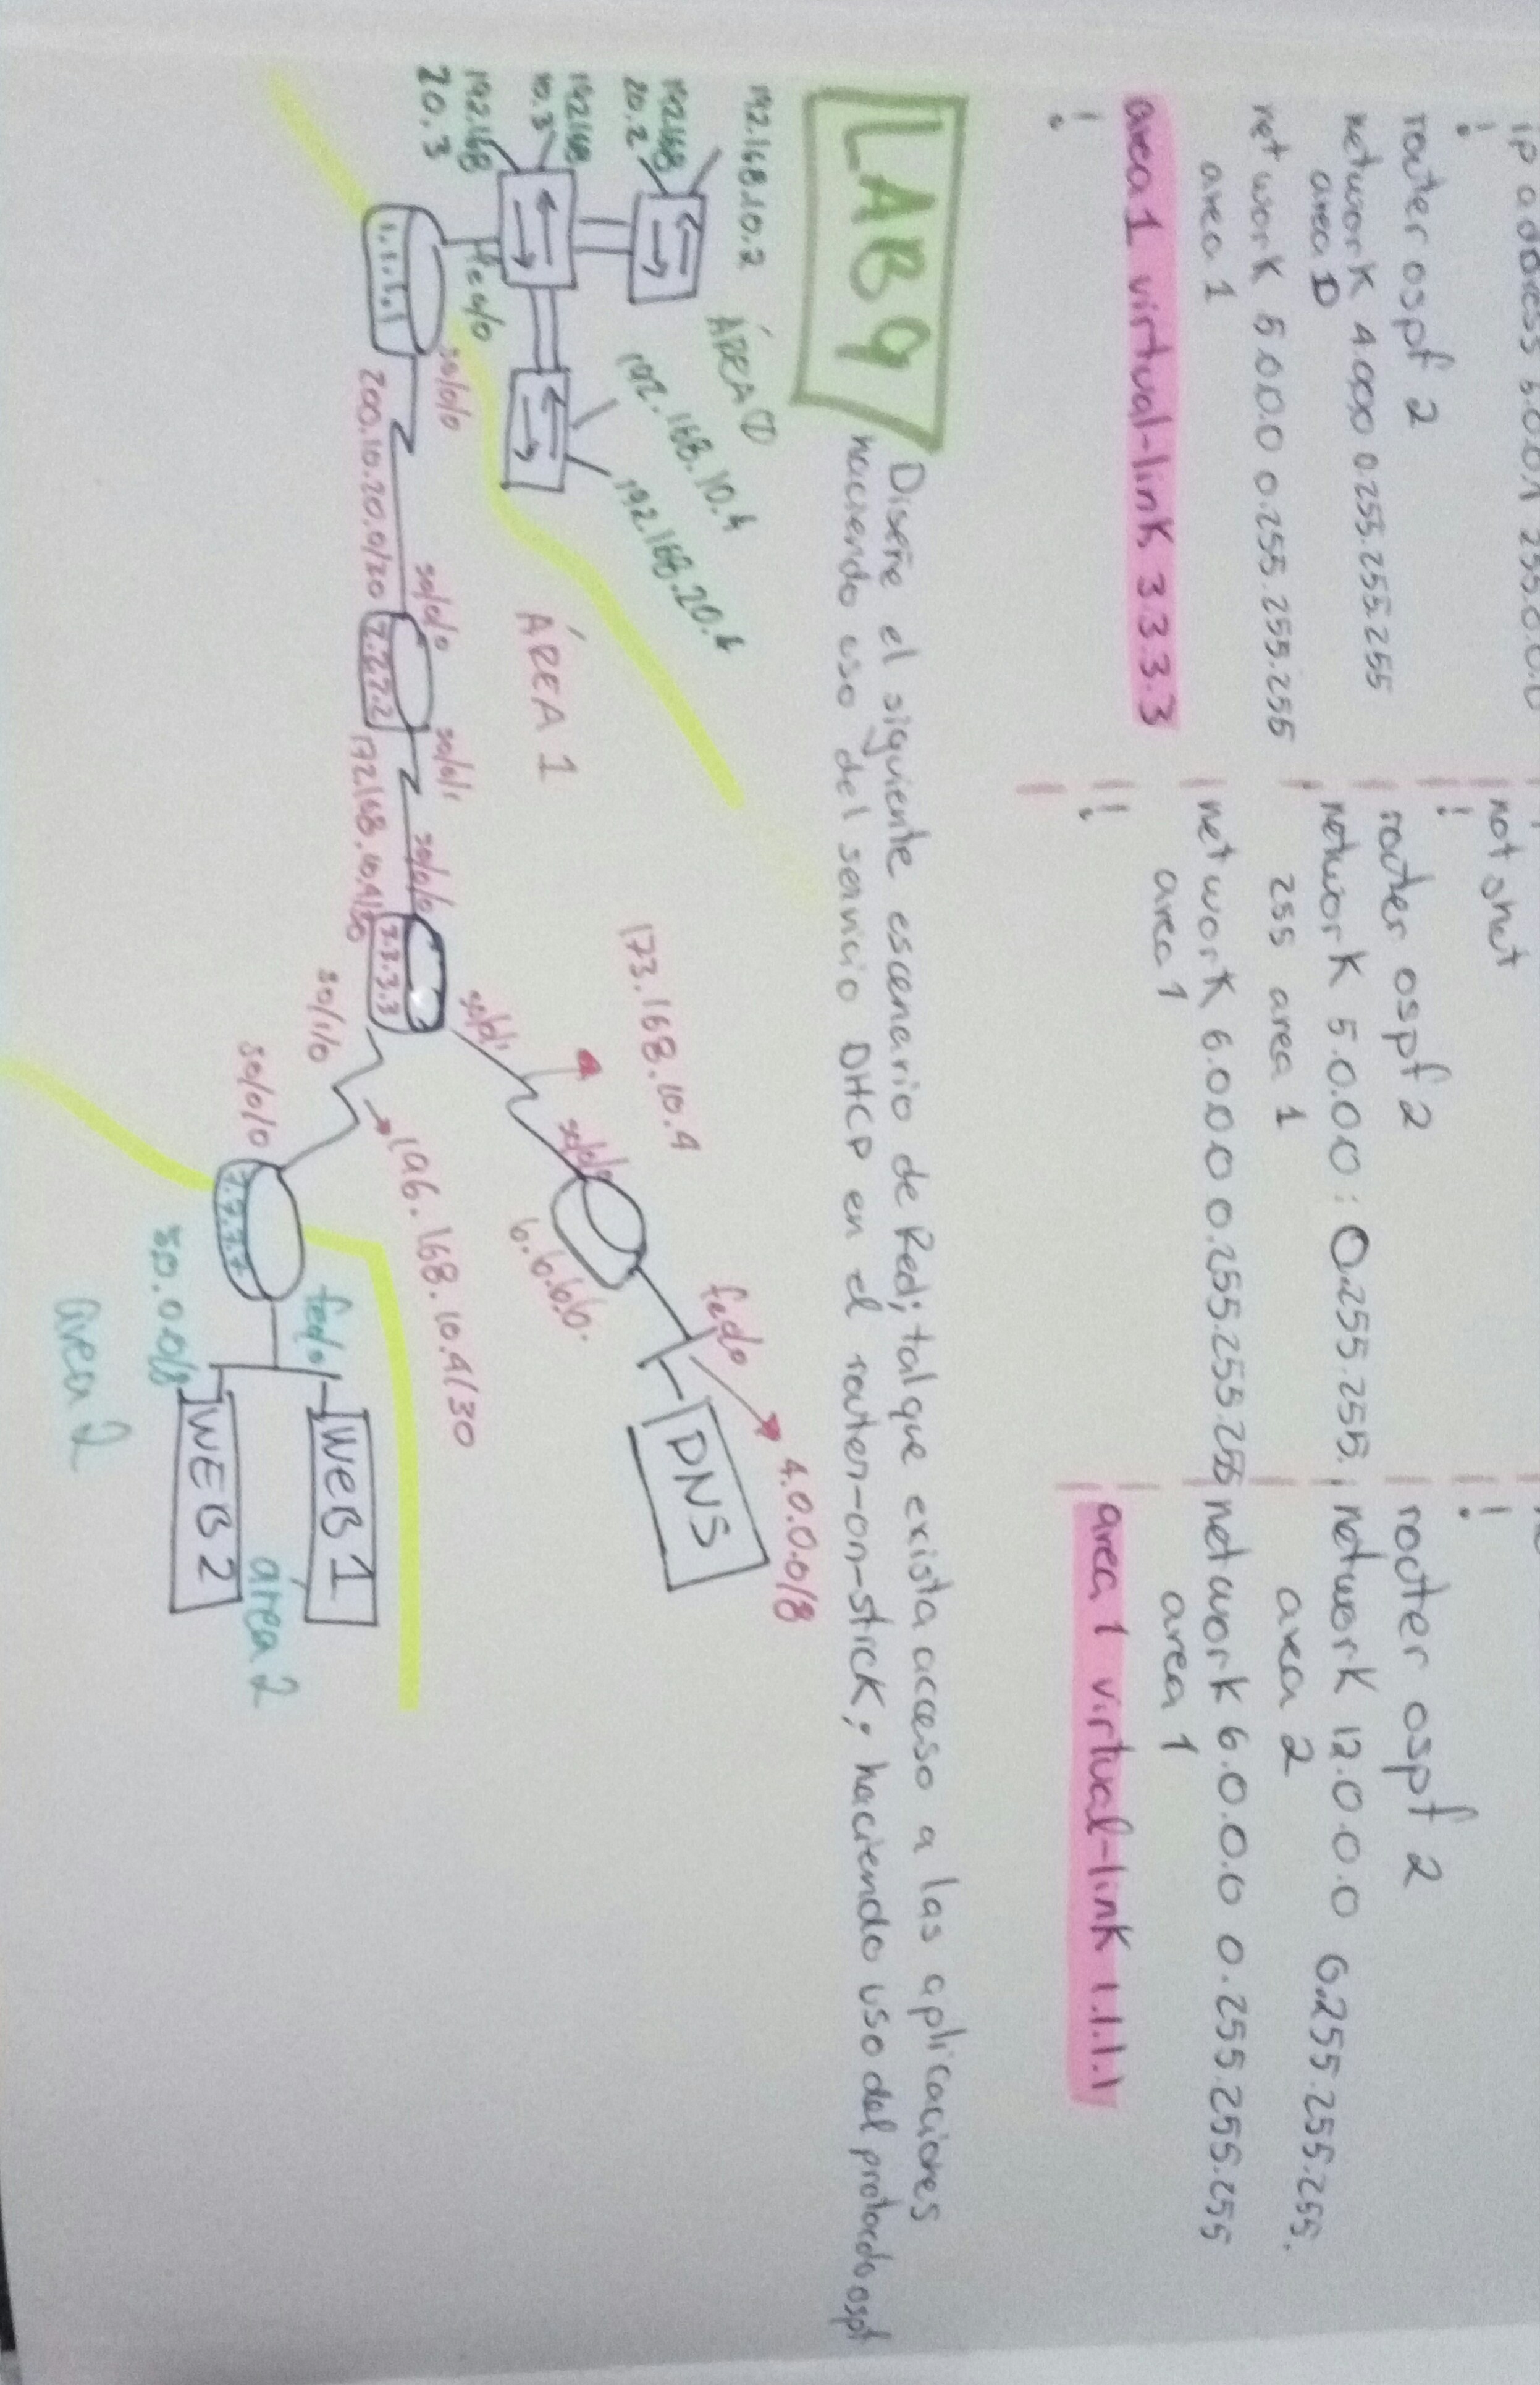 ip address 5.0.0.1 255.0.0.0
!
router ospf 2
network 4.0.0.0 0.255.255.255
area 0
network 5.0.0.0 0.255.255.255
area 1
area 1 virtual-link 3.3.3.3
!
not shut
!
router ospf 2
network 5.0.0.0 0.255.255.
255 area 1
network 6.0.0.0 0.255.255.255
area 1
!
!
router ospf 2
network 12.0.0.0 0.255.255.255.
area 2
network 6.0.0.0 0.255.255.255
area 1
area 1 virtual-link 1.1.1.1
LAB 9
Diseñe el siguiente escenario de Red; tal que exista acceso a las aplicaciones
haciendo uso del servicio DHCP en el router-on-stick; haciendo uso del protocolo ospf
192.168.10.2
ÁREA 0
192.168
20.2
192.168
10.3
192.168
20.3
192.168.10.4
192.168.20.4
fe0/0
1.1.1.1
s0/0/0
200.10.20.0/20
ÁREA 1
s0/0/0
2.2.2.2
s0/0/1
172.168.10.4/30
s0/0/0
3.3.3.3
s0/0/1
173.168.10.4
s0/0/0
6.6.6.6.
fe0/0
4.0.0.0/8
DNS
s0/1/0
196.168.10.4/30
s0/0/0
7.7.7.7
fe0/0
WEB 1
área 2
WEB 2
30.0.0/8
área 2